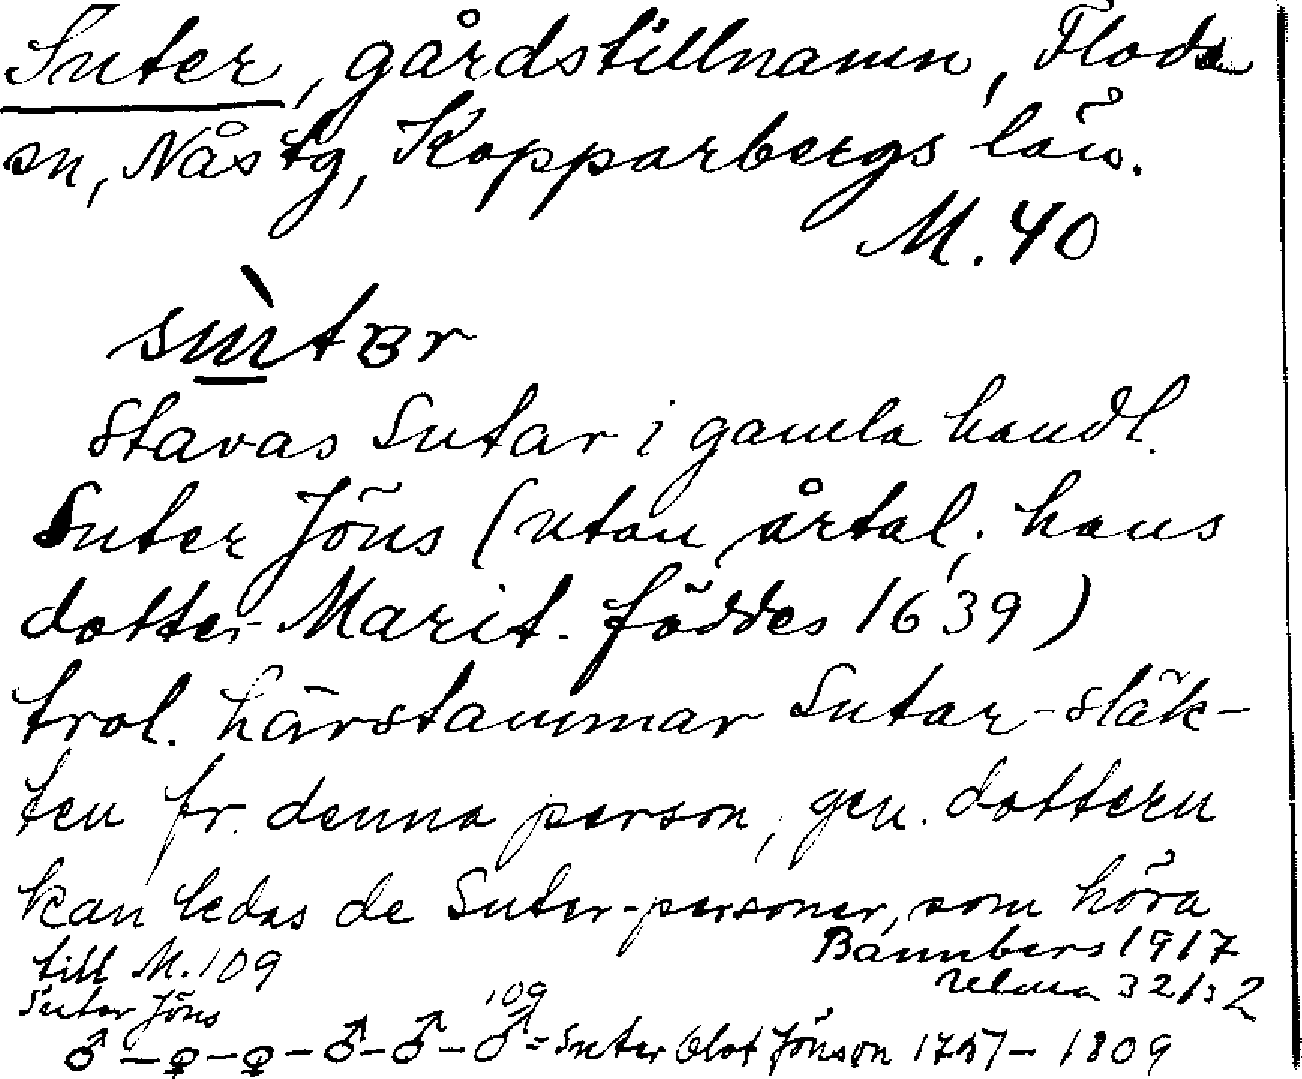 Suter, gårdstillnamn, Floda
sn, Nås tg, Kopparbergs län.
M. 40
sùtər
Stavas Sutar i gamla handl.
Suter Jöns (utan årtal; hans
dotter Marit. föddes 1639)
trol. härstammar Sutar-släk-
ten fr. denna person, gen. dottern
kan ledas de Suter-personer, som höra
till M. 109
Bannbers 1917
Ulma 32/32
Suter Jöns
109
♂ – ♀ – ♀ – ♂ – ♂ – ♂ = Suter Olof Jönson 1757 – 1809